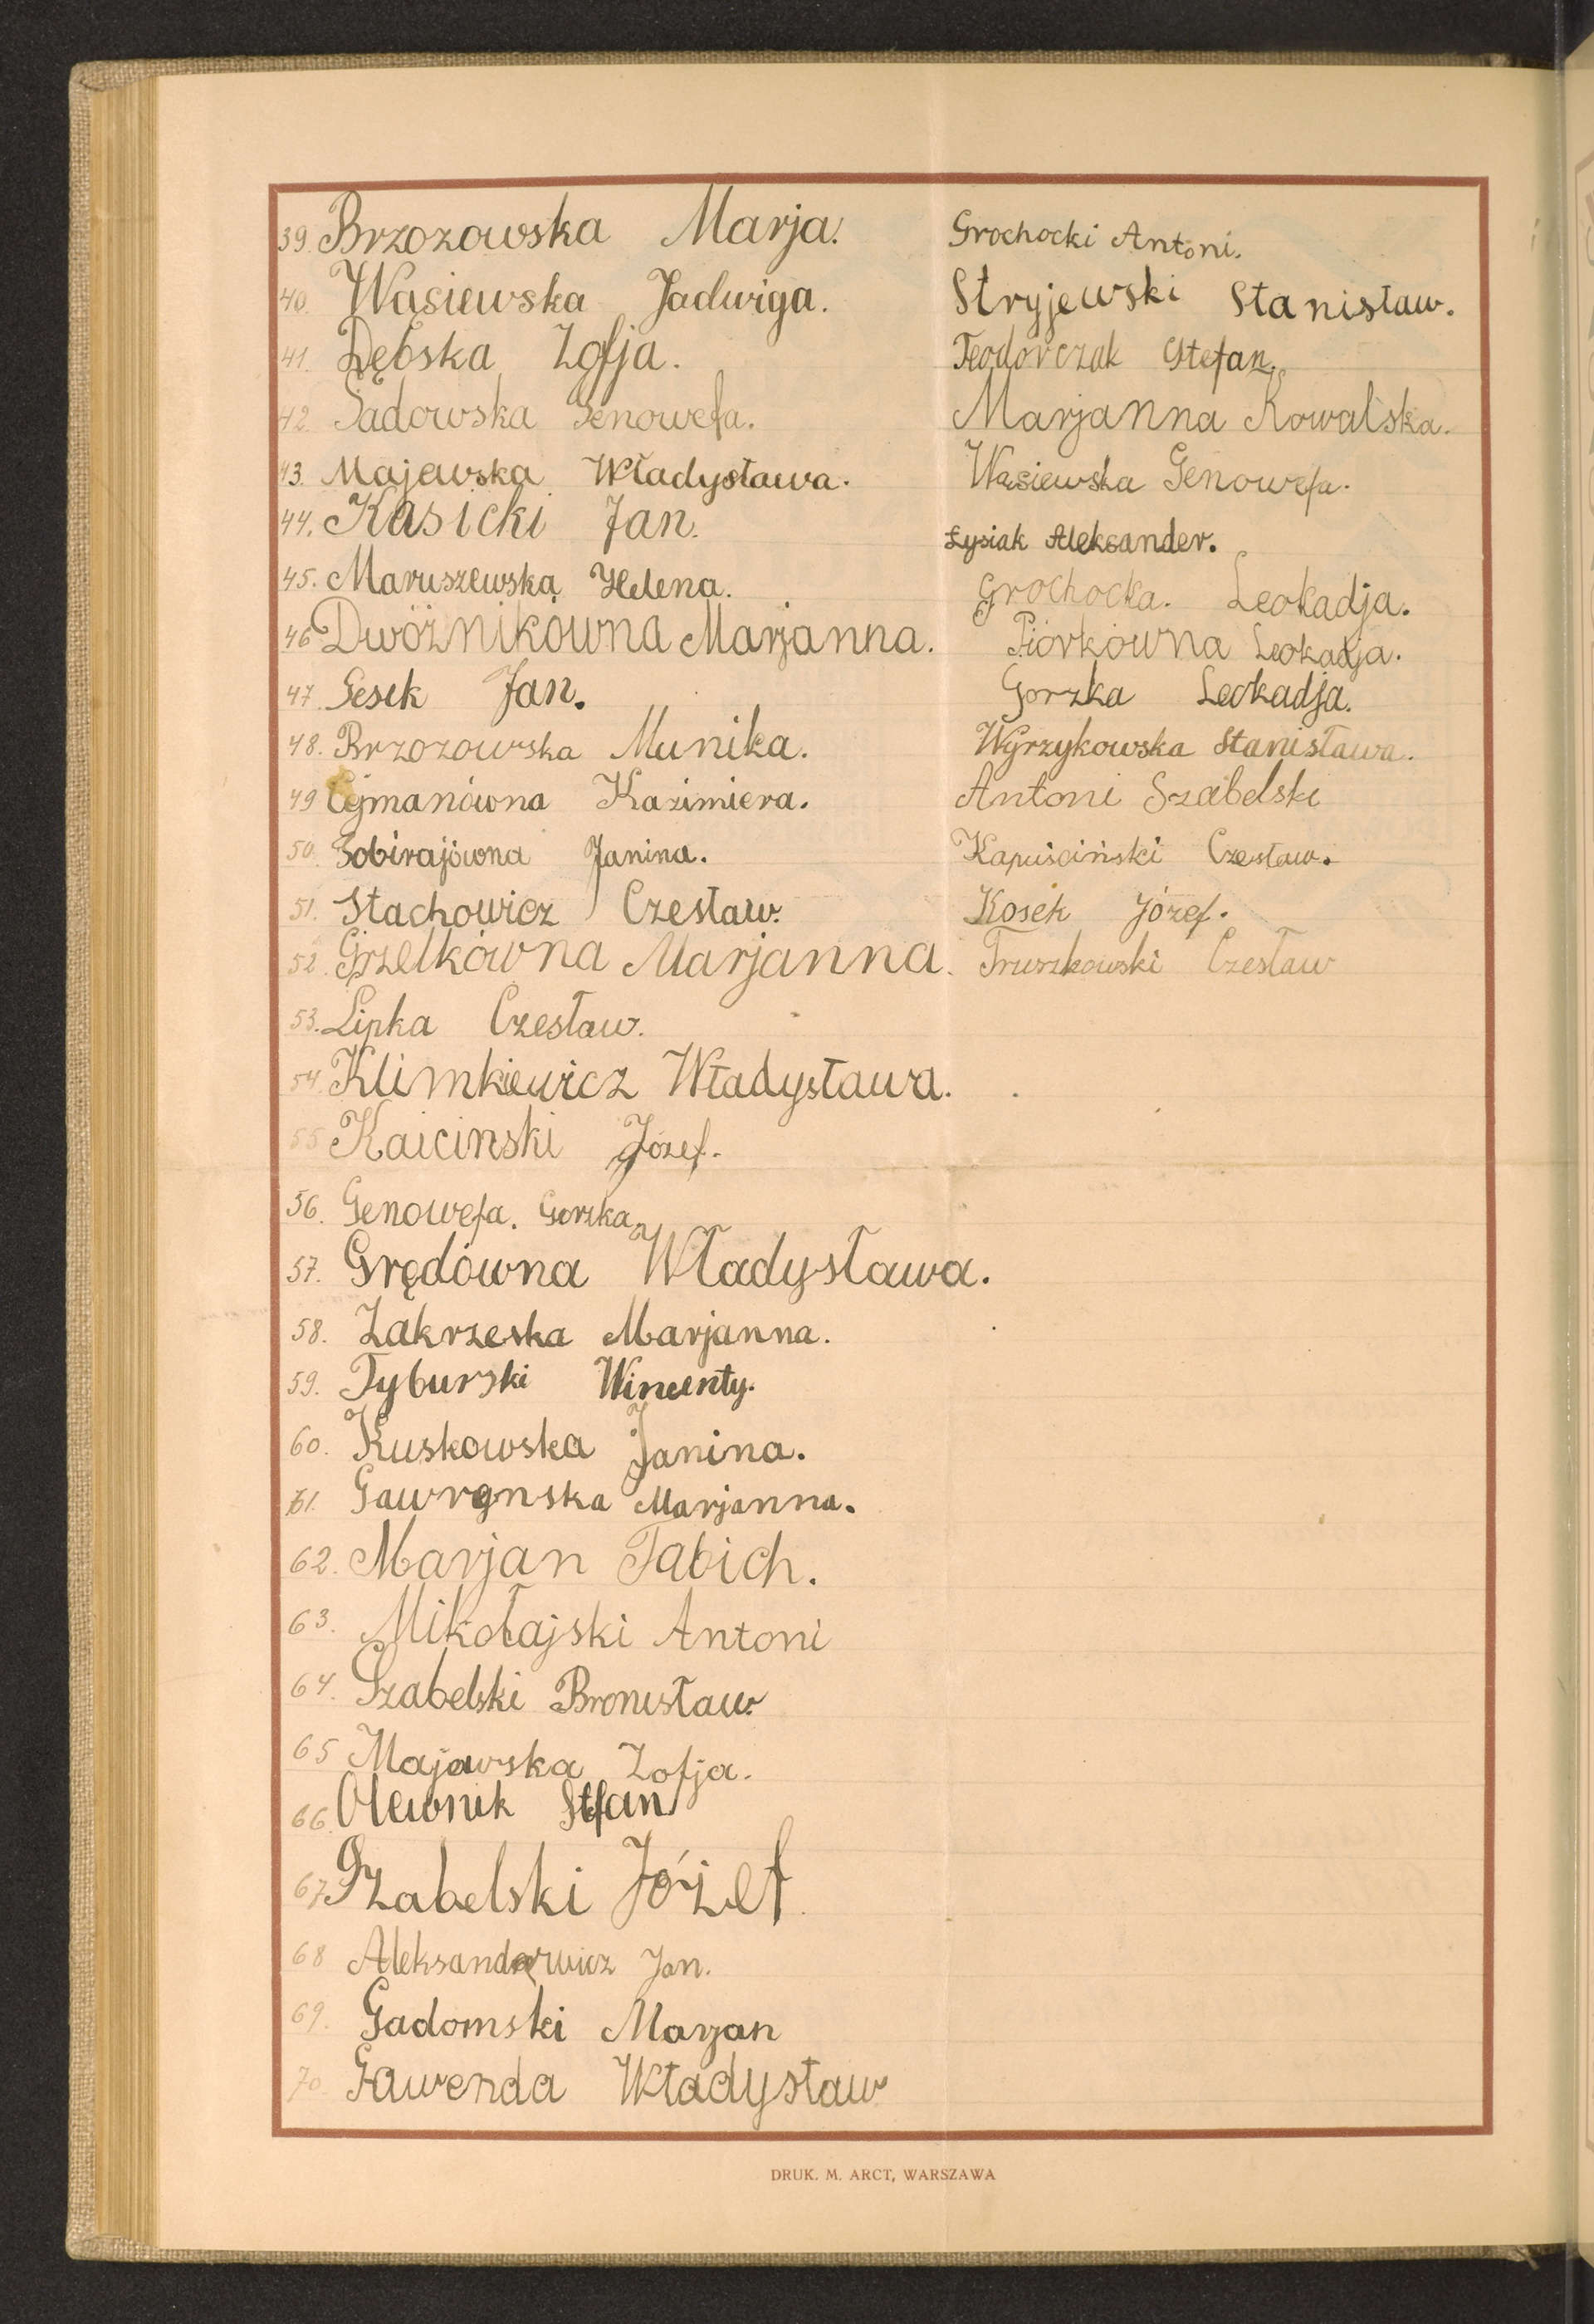 39. Brzozowska Marja.
40. Wasiewska Jadwiga.
41. Dębska Zofja.
42. Sadowska Genowefa.
43. Majewska Władysława.
44. Kasicki Jan.
45. Maruszewska Helena.
46 Dwóżnikówna Marjanna.
47. Gesek Jan.
48. Brzozowska Munika.
49 Cejmanówna Kazimiera.
50. Sobirajówna Janina.
51. Stachowicz Czesław.
52. Grzelkówna Marjanna.
53. Lipka Czesław.
54. Klimkiewicz Władysława.
55 Kaicinski Józef.
56. Genowefa. Gorzka
57. Grędówna Władysława.
58. Zakrzeska Marjanna.
59. Tyburski Wincenty.
60. Kuskowska Janina.
61. Gawrynska Marjanna.
62. Marjan Tabich.
63. Mikołajski Antoni
64. Szabelski Bronisław
65 Majewska Zofja.
66. Olewnik Stefan
67 Szabelski Józef
68 Aleksandrowicz Jan.
69. Gadomski Maryan
70. Gawenda Władysław
Grochocki Antoni.
Stryjewski Stanisław.
Teodorczak Stefan.
Marjanna Kowalska.
Wasiewska Genowefa.
Łysiak Aleksander.
Grochocka. Leokadja.
Piórkówna Leokadja.
Gorzka Leokadja.
Wyrzykowska Stanisława.
Antoni Szabelski
Kapuściński Czesław.
Kosek Józef.
Truszkowski Czesław
DRUK. M. ARCT, WARSZAWA